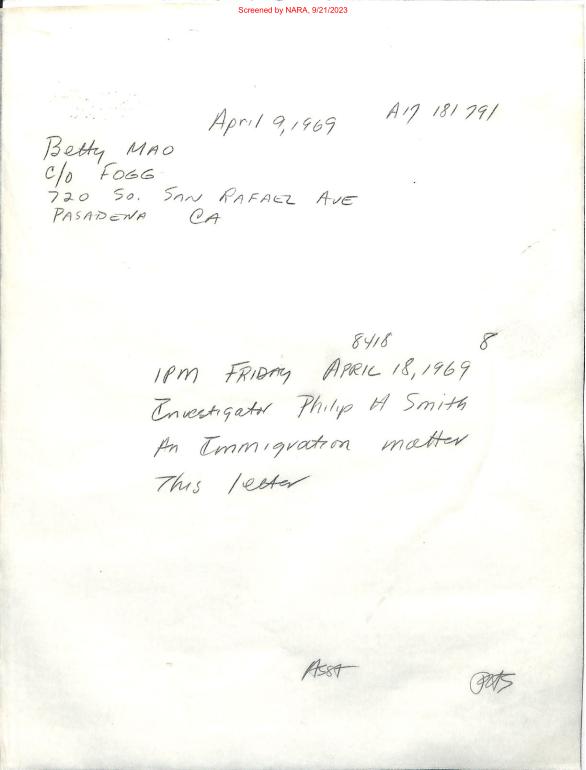 Screened by NARA, 9/21/2023
April 9, 1969
A17 181 791
Betty MAO
c/o FOGG
720 So. SAN RAFAEL AVE
PASADENA CA
8418 8
1PM FRIDAY APRIL 18, 1969
Investigator Philip H Smith
An Immigration matter
This letter
Asst